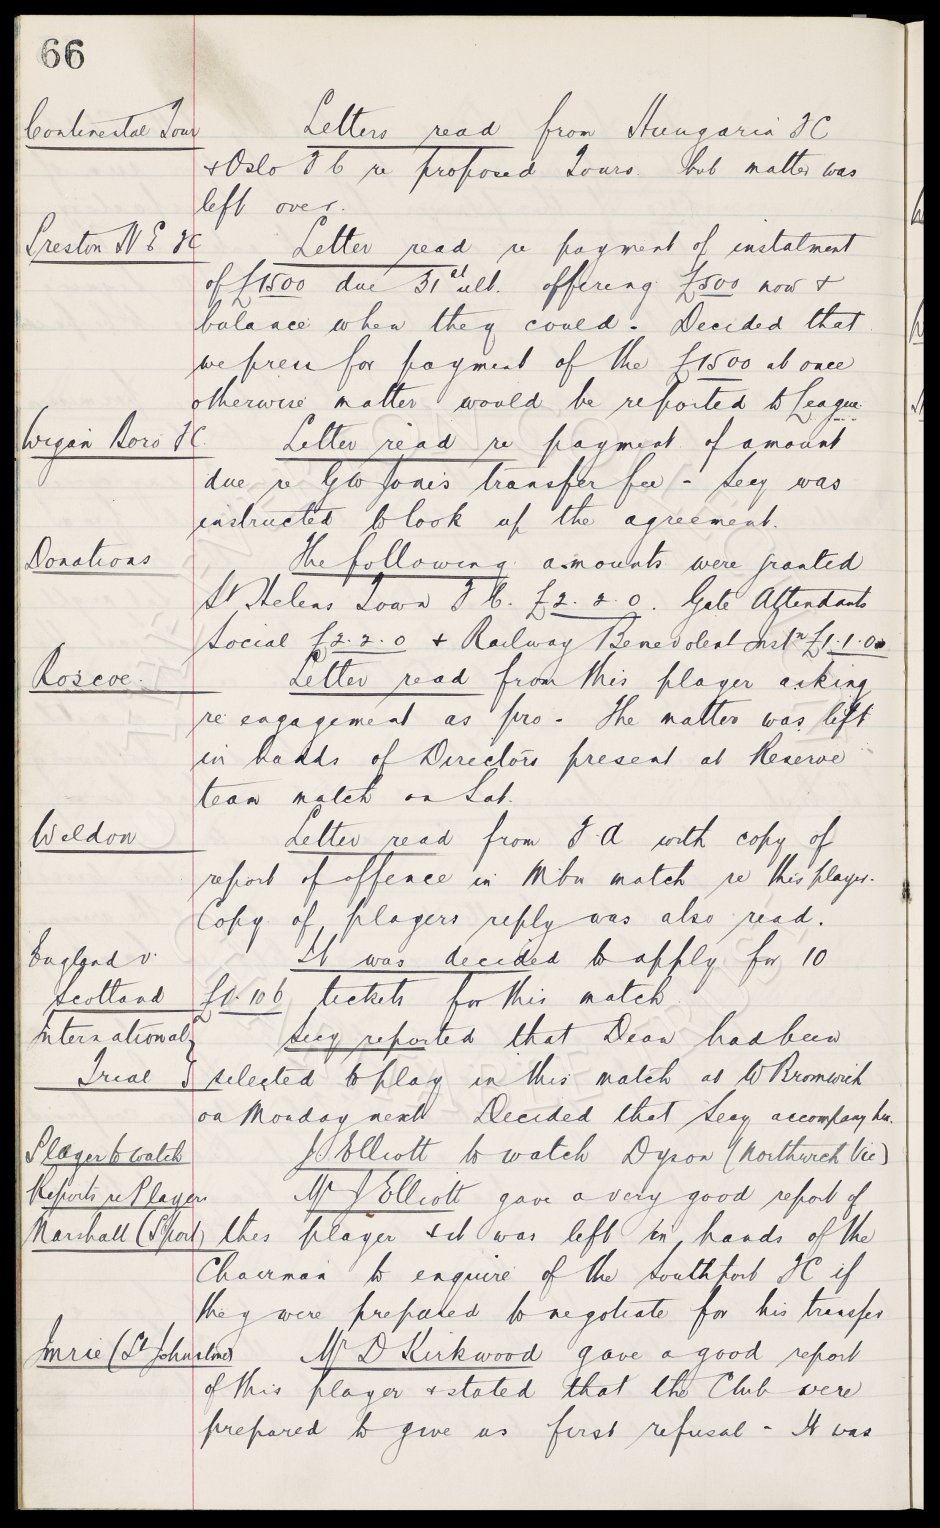 66
Continental Tour Letters read from Hungaria F C
& Oslo F C re proposed Tours. but matter was
left over.
Preston N E F C Letter read re payment of instalment
of £1500 due 31st ult. offering £500 now &
balance when they could - Decided that
we press for payment of the £1500 at once
otherwise matter would be reported to League.
Wigan Boro F C. Letter read re payment of amount
due re G W Jones transfer fee - Secy was
instructed to look up the agreement.
Donations The following amounts were granted
St Helens Town F C. £2. 2. 0. Gate Attendants
Social £2. 2. 0 & Railway Benevolent Instn £1. 1. 0
Roscoe. Letter read from this player asking
re engagement as pro - The matter was left
in hands of Directors present at Reserve
team match on Sat.
Weldon Letter read from F. A with copy of
report of offence in Mbro match re this player.
Copy of players reply was also read.
England v. It was decided to apply for 10
Scotland £1. 10 6 tickets for this match
International Secy reported that Dean had been
Trial selected to play in this match at W Bromwich
on Monday next Decided that Secy accompany him.
Player to watch J Elliott to watch Dyson (Northwich Vic)
Reports re Players Mr J Elliott gave a very good report of
Marshall (S'port) this player & it was left in hands of the
Chairman to enquire of the Southport F C if
they were prepared to negotiate for his transfer
Imrie (St Johnstone) Mr D Kirkwood gave a good report
of this player & stated that the Club were
prepared to give us first refusal - It was